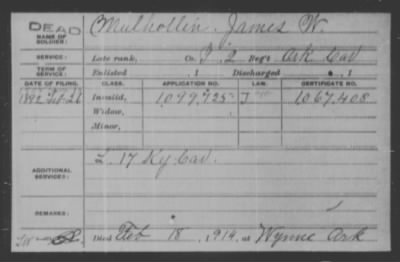 DEAD
NAME OF SOLDIER: Mulhollin, James W.
SERVICE: Late rank, Co. I, 2 Reg't Ark Cav
TERM OF SERVICE: Enlisted , 1 Discharged , 1
DATE OF FILING. CLASS. APPLICATION NO. LAW. CERTIFICATE NO.
1892 Invalid, 1,099,725 1,067,408
Widow,
Minor,
ADDITIONAL SERVICES: L. 17 Ky Cav.
REMARKS:
Died Feb 18, 1914, at Wynne Ark